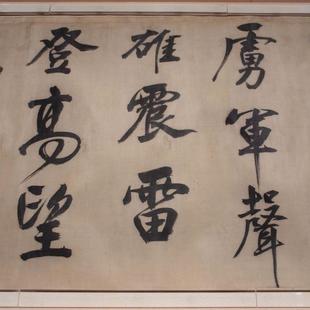 虜軍聲
雄震雷
登高望